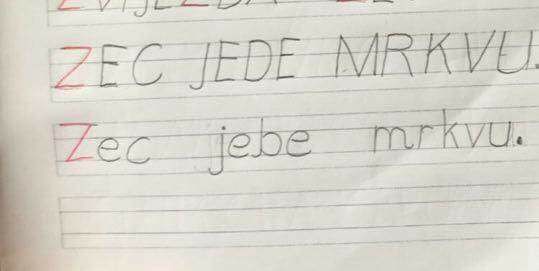 ZVIJEZDA
ZEC JEDE MRKVU.
Zec jebe mrkvu.